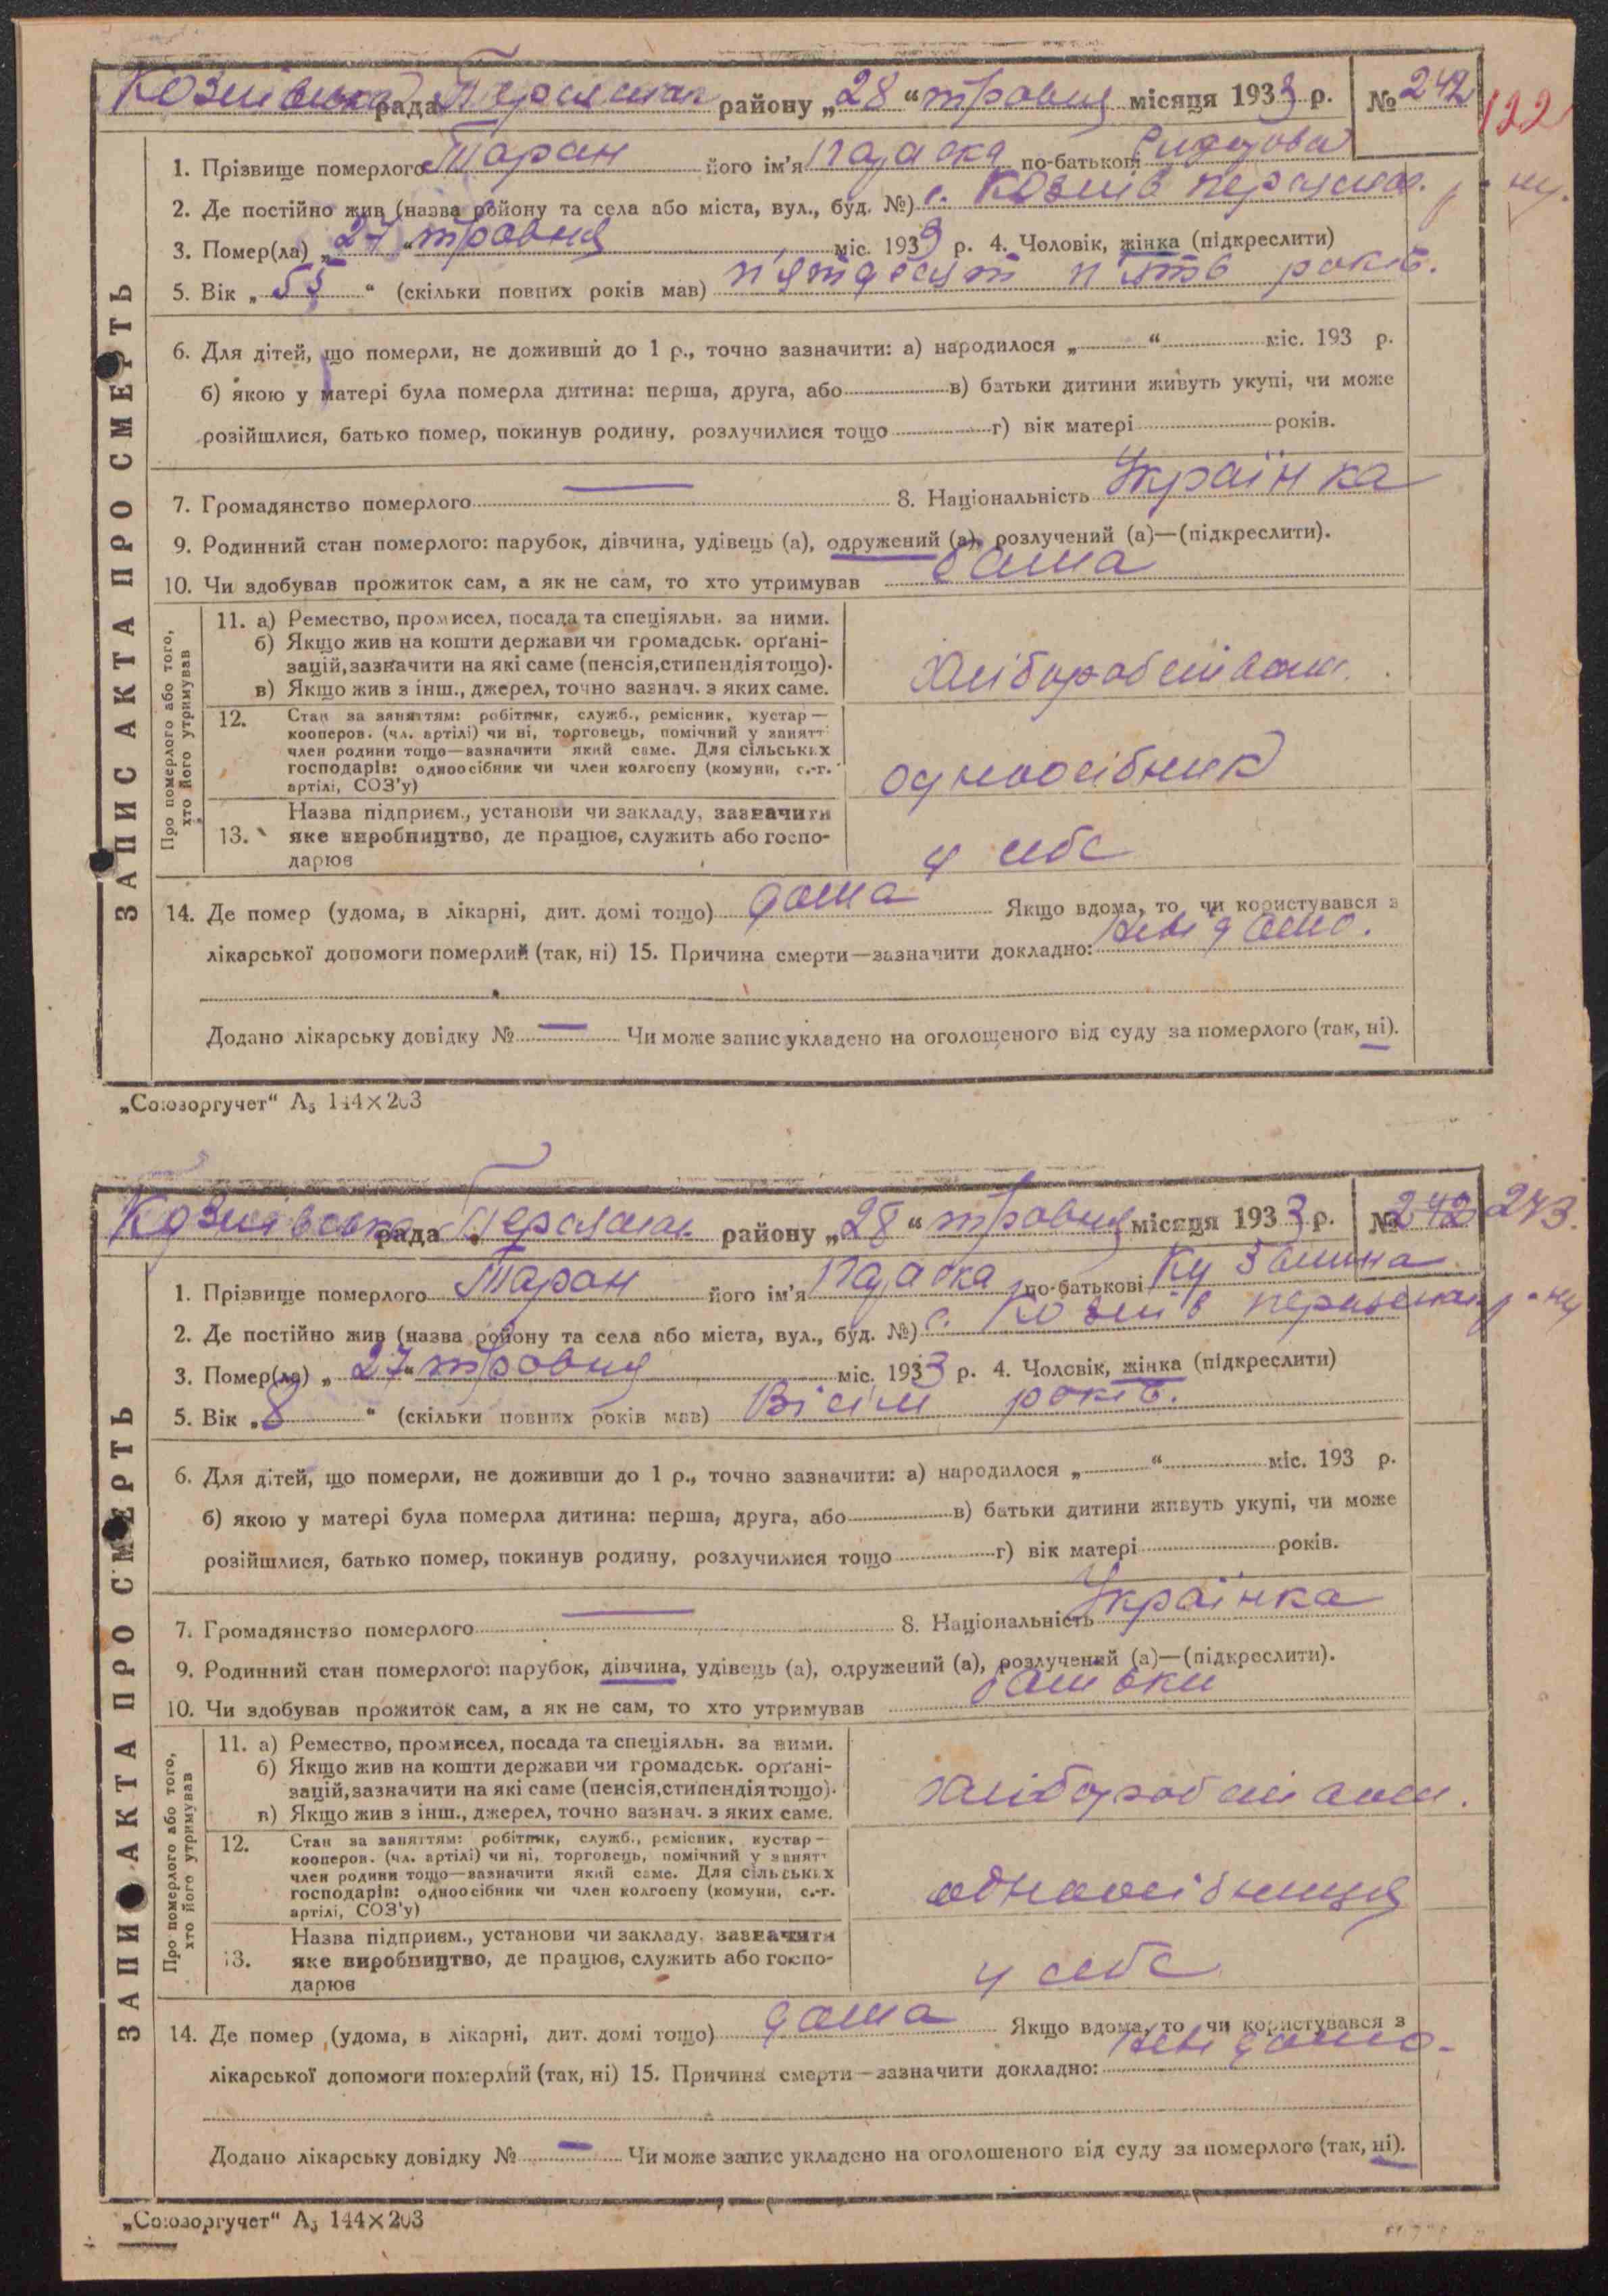 Козліївська рада Переяслав. району „28“ травня місяця 1933 р. № 242
122
1. Прізвище померлого Таран його ім'я Параска по-батькові
2. Де постійно жив (назва району та села або міста, вул., буд. №) с. Козлів Переяслав.
3. Помер(ла) „27“ травня міс. 1933 р. 4. Чоловік, жінка (підкреслити)
5. Вік „55“ (скільки повних років мав) п'ятдесят п'ять років.
6. Для дітей, що померли, не доживши до 1 р., точно зазначити: а) народилося „ “ міс. 193 р.
б) якою у матері була померла дитина: перша, друга, або в) батьки дитини живуть укупі, чи може
розійшлися, батько помер, покинув родину, розлучилися тощо г) вік матері років.
7. Громадянство померлого — 8. Національність Українка
9. Родинний стан померлого: парубок, дівчина, удівець (а), одружений (а), розлучений (а)—(підкреслити).
10. Чи здобував прожиток сам, а як не сам, то хто утримував сама
ЗАПИС АКТА ПРО СМЕРТЬ
Про померлого або того, хто його утримував
11. а) Ремество, промисел, посада та спеціяльн. за ними.
б) Якщо жив на кошти держави чи громадськ. орґані-
зацій, зазначити на які саме (пенсія, стипендія тощо).
в) Якщо жив з інш., джерел, точно зазнач. з яких саме.
12. Стан за заняттям: робітник, служб., ремісник, кустар—
кооперов. (чл. артілі) чи ні, торговець, помічний у занятт
член родини тощо—зазначити який саме. Для сільських
господарів: одноосібник чи член колгоспу (комуни, с.-г.
артілі, СОЗ'у)
одноосібник
13. Назва підприєм., установи чи закладу, зазначити
яке виробництво, де працює, служить або госпо-
дарює
у себе
14. Де помер (удома, в лікарні, дит. домі тощо) дома Якщо вдома, то чи користувався з
лікарської допомоги померлий (так, ні) 15. Причина смерти—зазначити докладно: невідомо.
Додано лікарську довідку № — Чи може запис укладено на оголошеного від суду за померлого (так, ні).
„Союзоргучет“ А5 144×203
Козліївська рада Переяслав. району „28“ травня місяця 1933 р. № 242 243.
1. Прізвище померлого Таран його ім'я Параска по-батькові Кузьмина
2. Де постійно жив (назва району та села або міста, вул., буд. №) с. Козлів Переяслав.
3. Помер(ла) „27“ травня міс. 1933 р. 4. Чоловік, жінка (підкреслити)
5. Вік „8“ (скільки повних років мав) Вісім років.
6. Для дітей, що померли, не доживши до 1 р., точно зазначити: а) народилося „ “ міс. 193 р.
б) якою у матері була померла дитина: перша, друга, або в) батьки дитини живуть укупі, чи може
розійшлися, батько помер, покинув родину, розлучилися тощо г) вік матері років.
7. Громадянство померлого — 8. Національність Українка
9. Родинний стан померлого: парубок, дівчина, удівець (а), одружений (а), розлучений (а)—(підкреслити).
10. Чи здобував прожиток сам, а як не сам, то хто утримував батьки
ЗАПИС АКТА ПРО СМЕРТЬ
Про померлого або того, хто його утримував
11. а) Ремество, промисел, посада та спеціяльн. за ними.
б) Якщо жив на кошти держави чи громадськ. орґані-
зацій, зазначити на які саме (пенсія, стипендія тощо).
в) Якщо жив з інш., джерел, точно зазнач. з яких саме.
12. Стан за заняттям: робітник, служб., ремісник, кустар—
кооперов. (чл. артілі) чи ні, торговець, помічний у занятт
член родини тощо—зазначити який саме. Для сільських
господарів: одноосібник чи член колгоспу (комуни, с.-г.
артілі, СОЗ'у)
одноосібниця
13. Назва підприєм., установи чи закладу, зазначити
яке виробництво, де працює, служить або госпо-
дарює
у себе
14. Де помер (удома, в лікарні, дит. домі тощо) дома Якщо вдома, то чи користувався з
лікарської допомоги померлий (так, ні) 15. Причина смерти—зазначити докладно: невідомо.
Додано лікарську довідку № — Чи може запис укладено на оголошеного від суду за померлого (так, ні).
„Союзоргучет“ А5 144×203